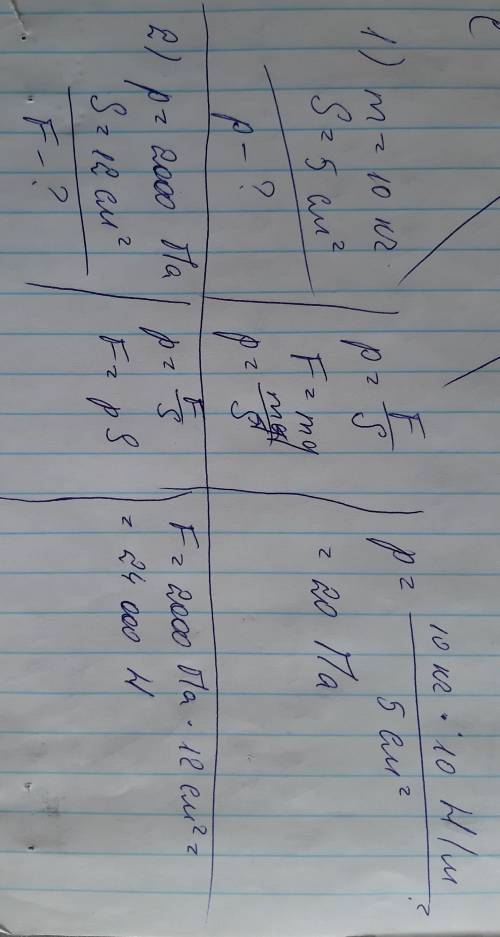 1) m = 10 кг
S = 5 см²
p - ?
p = F/S
F = mg
p = mg/S
p = 10 кг · 10 Н/м / 5 см² =
= 20 Па
2) p = 2000 Па
S = 12 см²
F - ?
p = F/S
F = p S
F = 2000 Па · 12 см² =
= 24 000 Н